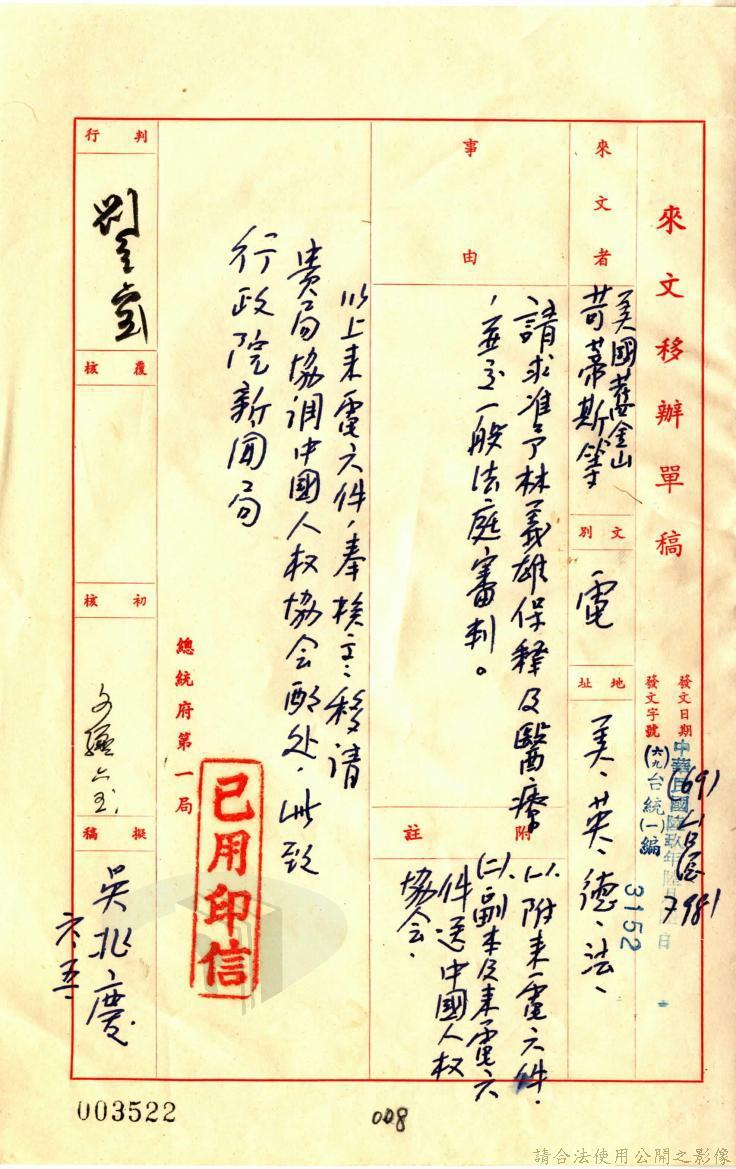 來文移辦單稿
發文日期
中華民國陸玖年陸月
日
發文字號
(六九)台統(一)編
3152
(69)
7981
來文者
美國舊金山
苛蒂斯等
文別
電
地址
美、英、德、法、
事由
請求准予林義雄保釋及醫療
，並予一般法庭審判。
附註
(一)、附來電六件．
(二)、副本及來電六
件送中國人权
協会．
以上來電六件，奉核交、移請
貴局協調中國人权協会酌处．此致
行政院新聞局
總統府第一局
已用印信
判行
覆核
初核
擬稿
吳北慶
六、五、
003522
008
請合法使用公開之影像